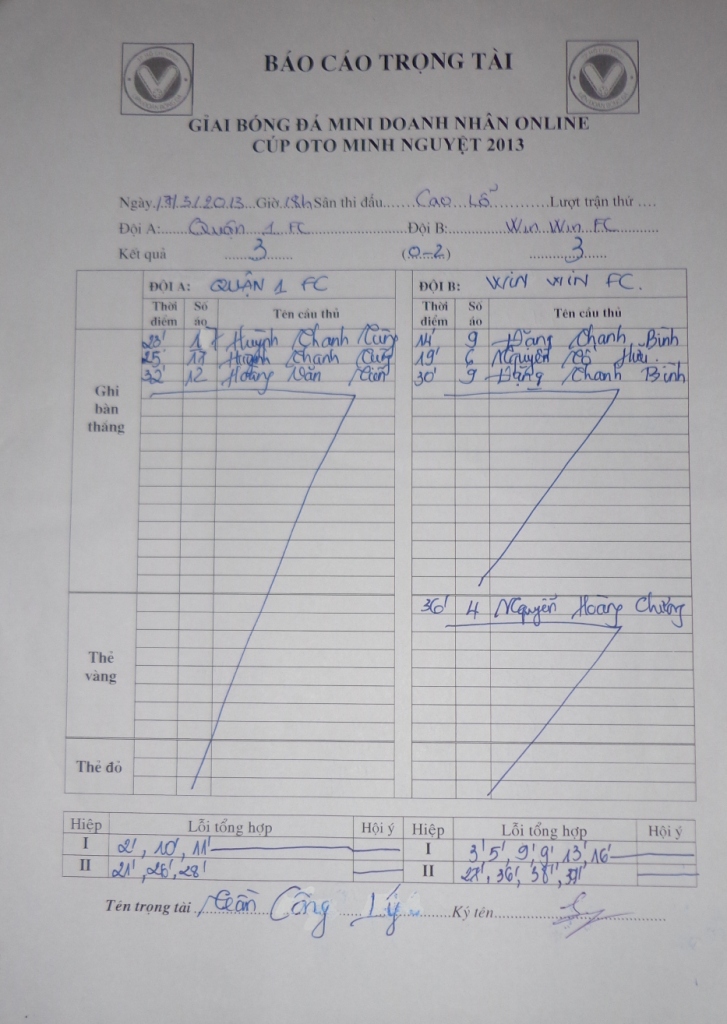 BÁO CÁO TRỌNG TÀI
GIẢI BÓNG ĐÁ MINI DOANH NHÂN ONLINE
CÚP OTO MINH NGUYỆT 2013
Ngày 17/3/2013 Giờ 18h Sân thi đấu Cao Lỗ Lượt trận thứ ....
Đội A: Quận 1 FC Đội B: Win Win FC
Kết quả 3 (0-2) 3
ĐỘI A: QUẬN 1 FC ĐỘI B: WIN WIN FC.
Thời điểm Số áo Tên cầu thủ Thời điểm Số áo Tên cầu thủ
Ghi bàn thắng
23' 17 Huỳnh Thanh Tùng 14' 9 Đặng Thanh Bình
25' 17 Huỳnh Thanh Tùng 19' 6 Nguyễn Hữu
32' 12 Hoàng Văn 30' 9 Đặng Thanh Bình
Thẻ vàng
36' 4 Nguyễn Hoàng Chương
Thẻ đỏ
Hiệp Lỗi tổng hợp Hội ý Hiệp Lỗi tổng hợp Hội ý
I 2', 10', 11' I 3' 5', 9', 9', 13', 16'
II 21', 26', 28' II 27', 36', 38',
Tên trọng tài Trần Công Lý Ký tên